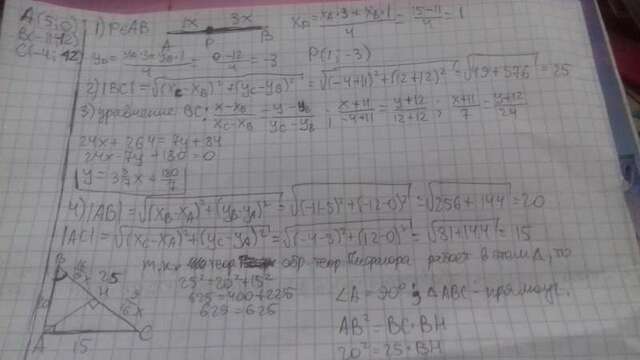 A(5; 0)
B(-11; -12)
C(-4; 12)
1) P∈AB
1x 3x
A P B
x_P = (x_A·3 + x_B·1)/4 = (15-11)/4 = 1
y_P = (y_A·3 + y_B·1)/4 = (0-12)/4 = -3 P(1; -3)
2) |BC| = √((x_C-x_B)²+(y_C-y_B)²) = √((-4+11)²+(12+12)²) = √(49+576) = 25
3) уравнение BC: (x-x_B)/(x_C-x_B) = (y-y_B)/(y_C-y_B); (x+11)/(-4+11) = (y+12)/(12+12); (x+11)/7 = (y+12)/24
24x+264=7y+84
24x-7y+180=0
y = 3 3/7 x + 180/7
4) |AB| = √((x_B-x_A)²+(y_B-y_A)²) = √((-11-5)²+(-12-0)²) = √(256+144) = 20
|AC| = √((x_C-x_A)²+(y_C-y_A)²) = √((-4-5)²+(12-0)²) = √(81+144) = 15
т.к. обр. теор. Пифагора работ в этом Δ, то
25²+20²+15²
625=400+225
625=625
∠A=90° ΔABC - прямоуг.
AB²=BC·BH
20²=25·BH
B
25
H
A
C
15